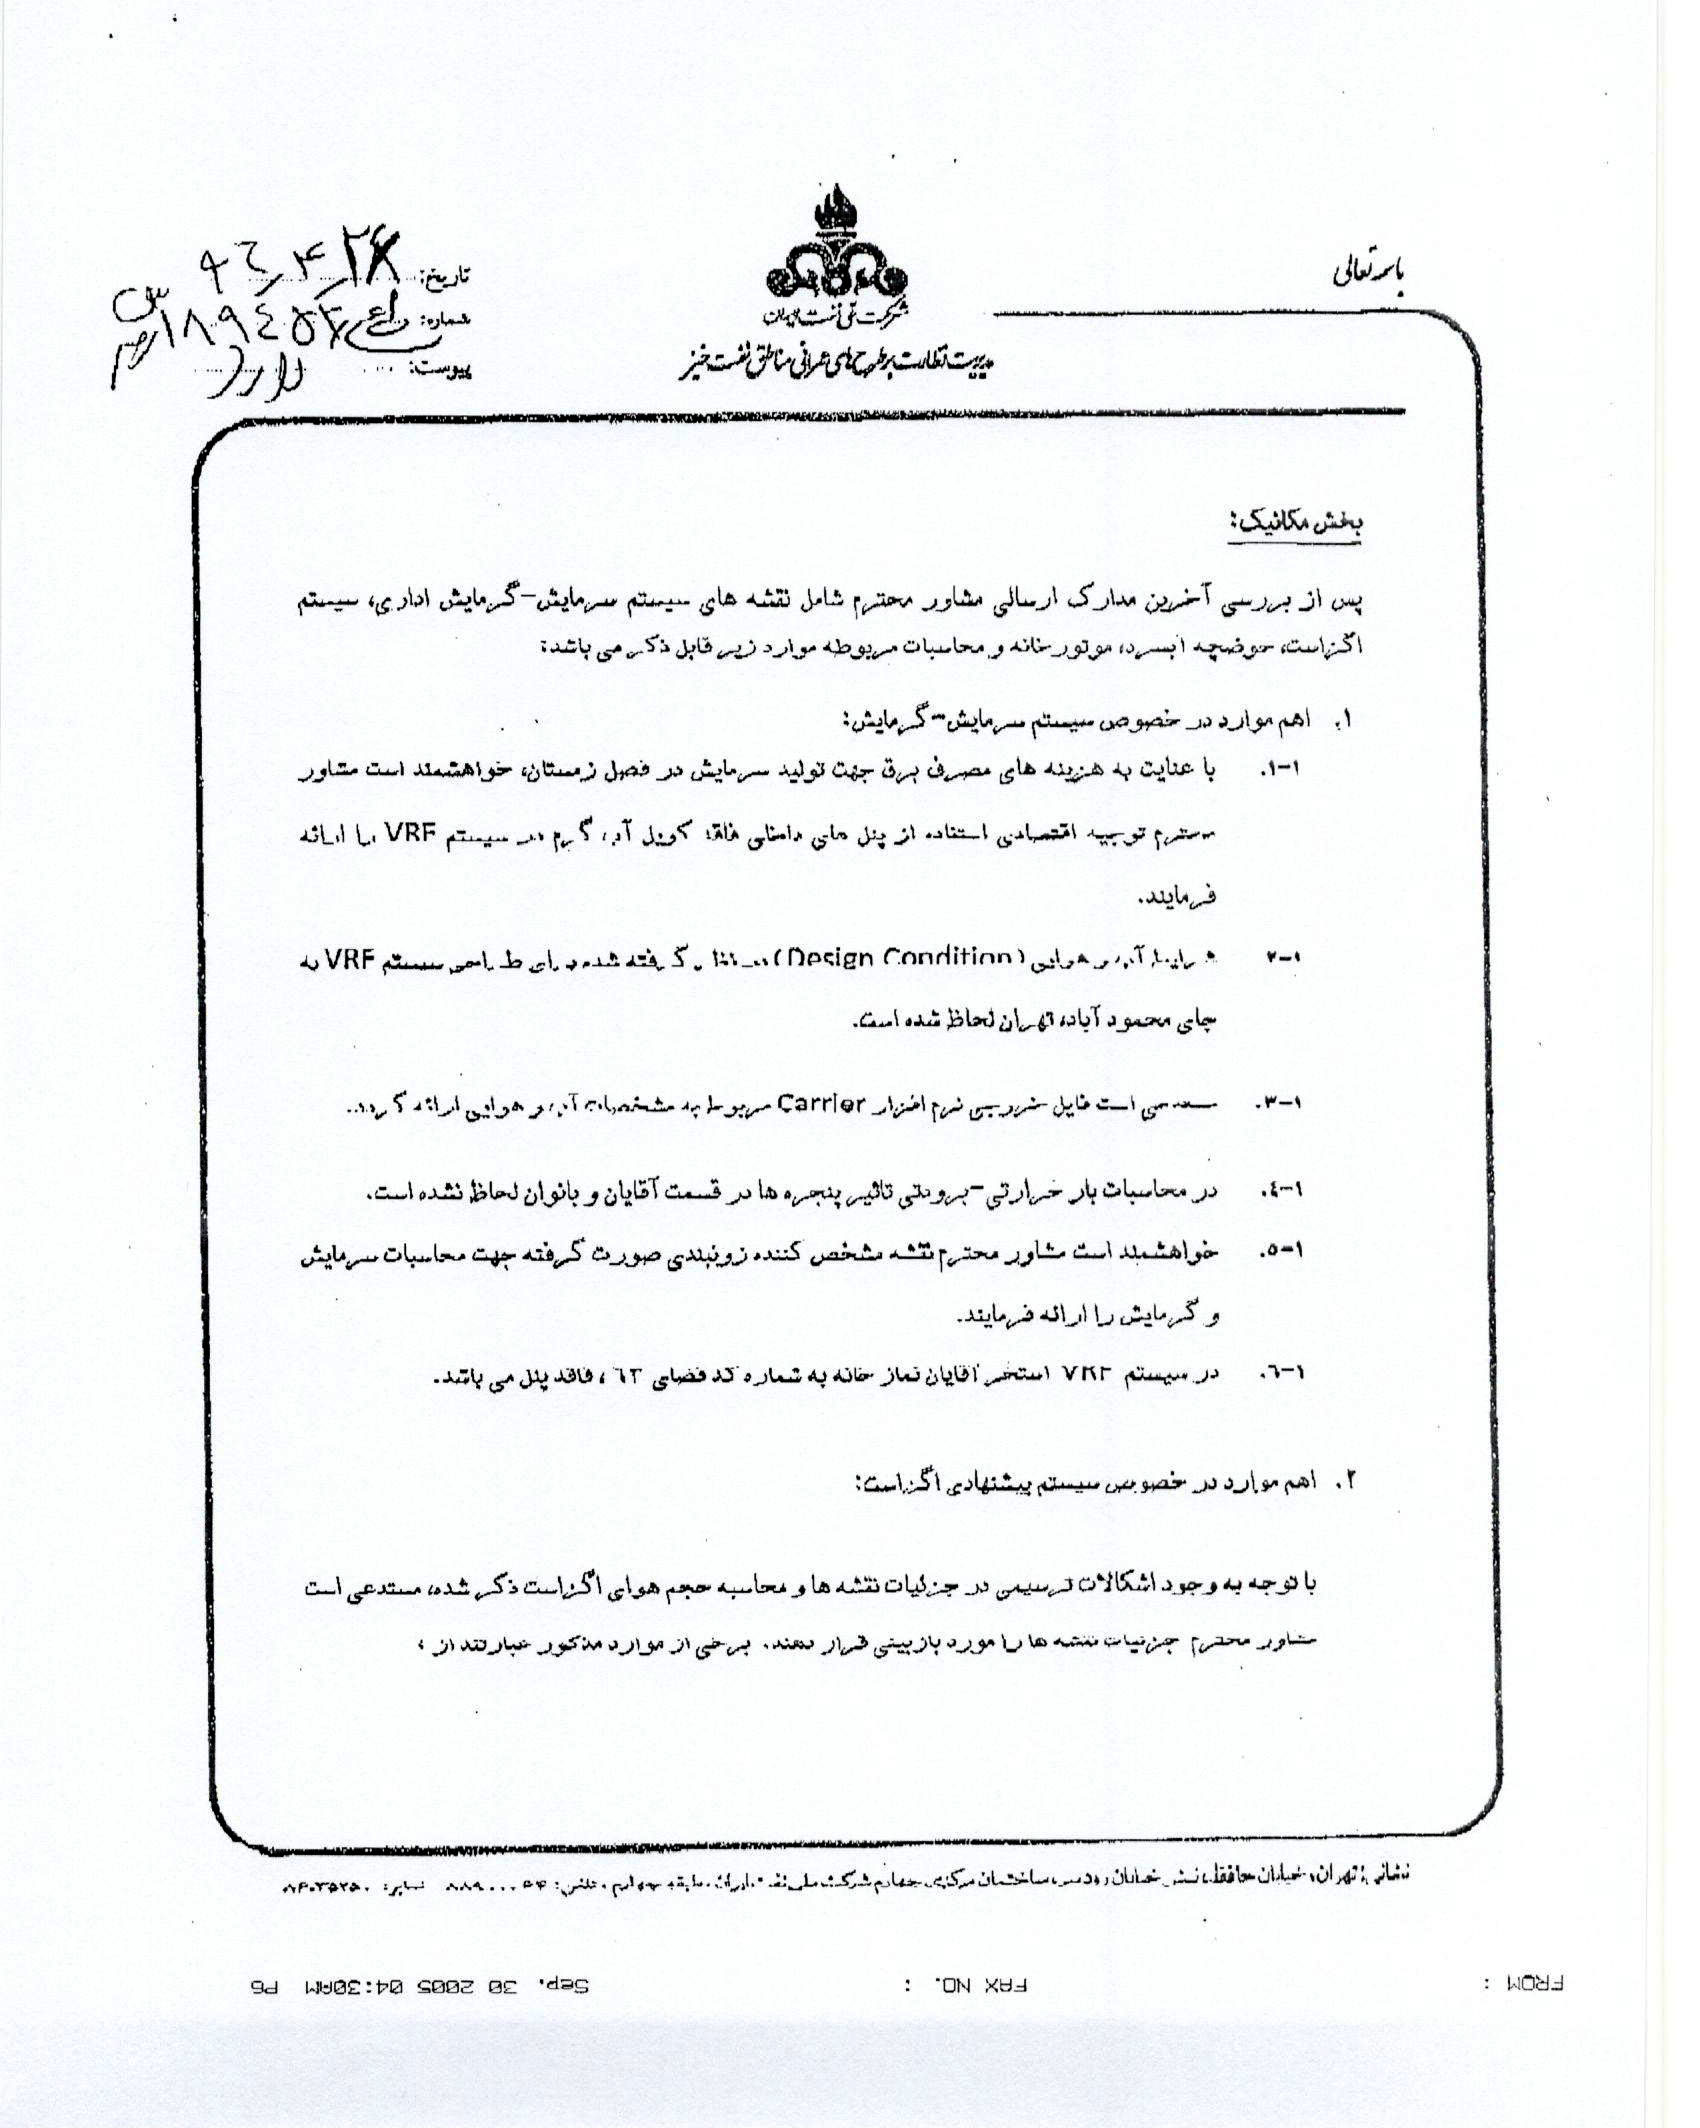 باسمه تعالی
شرکت ملی نفت ایران
مدیریت نظارت بر طرح های عمرانی مناطق نفت خیز
تاریخ:
شماره:
پیوست: دارد
بخش مکانیک:
پس از بررسی آخرین مدارک ارسالی مشاور محترم شامل نقشه های سیستم سرمایش-گرمایش اداری، سیستم
اگزاست، حوضچه آبسرد، موتورخانه و محاسبات مربوطه موارد زیر قابل ذکر می باشد:
۱. اهم موارد در خصوص سیستم سرمایش-گرمایش:
۱-۱. با عنایت به هزینه های مصرف برق جهت تولید سرمایش در فصل زمستان، خواهشمند است مشاور
محترم توجیه اقتصادی استفاده از پنل های داخلی فاقد کویل آب گرم در سیستم VRF را ارائه
فرمایند.
۱-۲ شرایط آب و هوایی (Design Condition) در نظر گرفته شده برای طراحی سیستم VRF به
جای محمود آباد، تهران لحاظ شده است.
۱-۳. مستدعی است فایل خروجی نرم افزار Carrier مربوط به مشخصات آب و هوایی ارائه گردد.
۱-٤. در محاسبات بار حرارتی-برودتی تاثیر پنجره ها در قسمت آقایان و بانوان لحاظ نشده است.
۱-۵. خواهشمند است مشاور محترم نقشه مشخص کننده زونبندی صورت گرفته جهت محاسبات سرمایش
و گرمایش را ارائه فرمایند.
۱-٦. در سیستم VRF استخر آقایان نماز خانه به شماره کد فضای ٦۲ ، فاقد پنل می باشد.
۲. اهم موارد در خصوص سیستم پیشنهادی اگزاست:
با توجه به وجود اشکالات ترسیمی در جزئیات نقشه ها و محاسبه حجم هوای اگزاست ذکر شده، مستدعی است
مشاور محترم جزئیات نقشه ها را مورد بازبینی قرار دهند. برخی از موارد مذکور عبارتند از :
نشانی: تهران، خیابان حافظ، نبش خیابان رودسر، ساختمان مرکزی چهارم شرکت ملی نفت ایران، طبقه چهارم، تلفن: نمابر:
FROM : FAX NO. : Sep. 30 2005 04:30AM P6